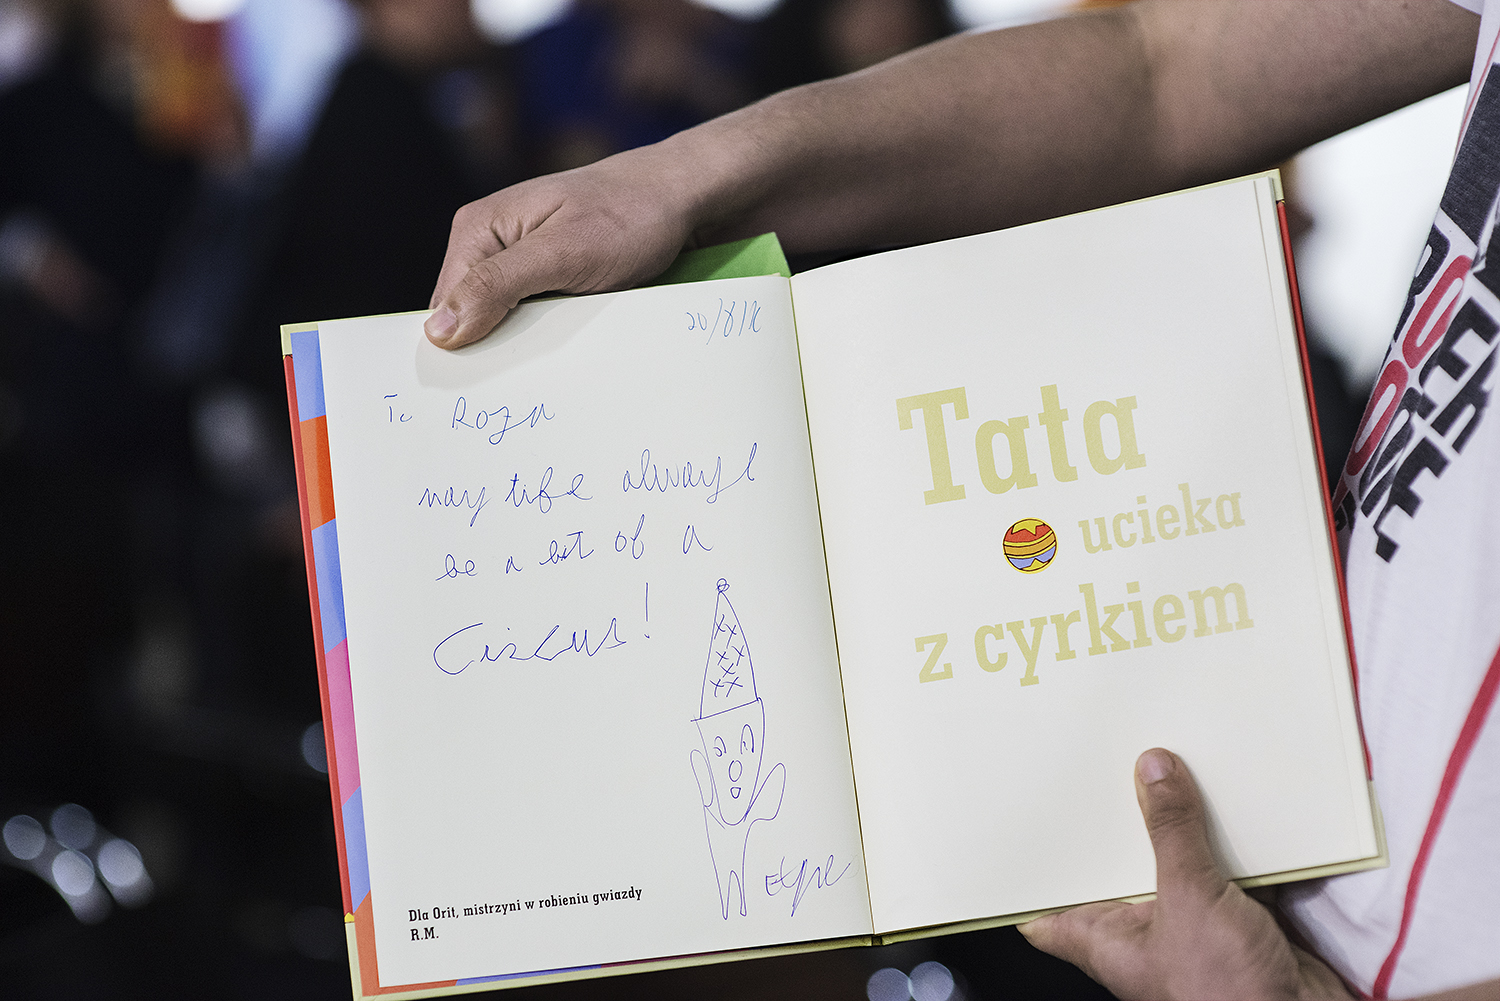 20/8/16
To Roza
may life always
be a bit of a
Circus!
Dla Orit, mistrzyni w robieniu gwiazdy
R.M.
Tata
ucieka
z cyrkiem